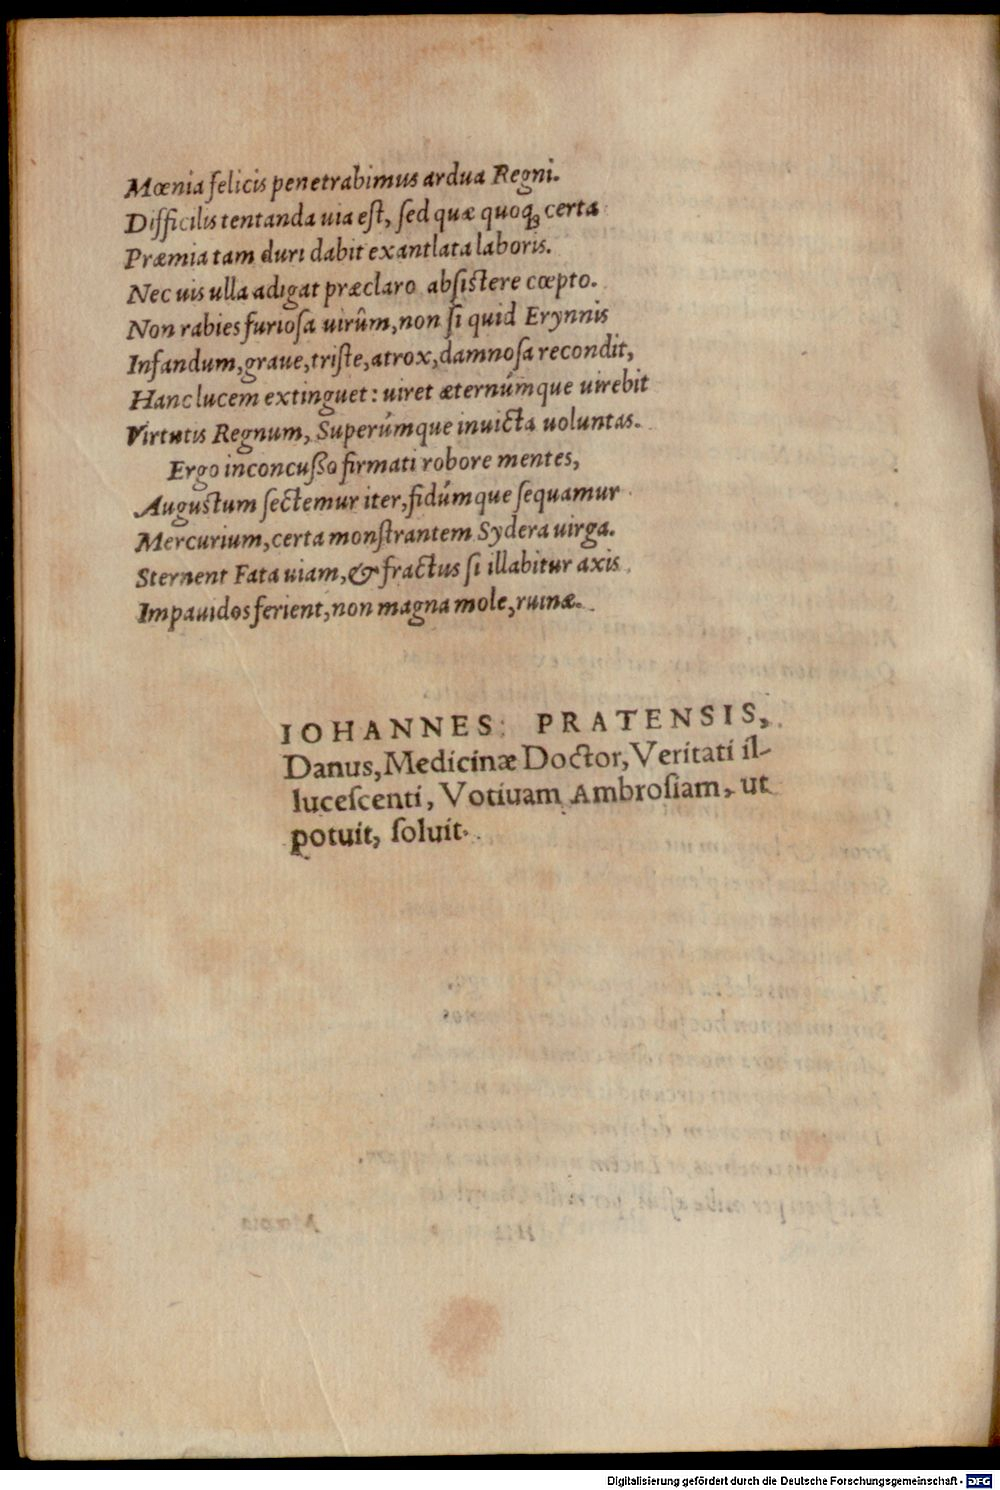 Mœnia felicis penetrabimus ardua Regni.
Difficilis tentanda uia est, sed quæ quoq; certa
Præmia tam duri dabit exantlata laboris.
Nec uis ulla adigat præclaro absistere cœpto.
Non rabies furiosa uirûm, non si quid Erynnis
Infandum, graue, triste, atrox, damnosa recondit,
Hanc lucem extinguet: uiret æternúmque uirebit
Virtutis Regnum, Superúmque inuicta uoluntas.
Ergo inconcusso firmati robore mentes,
Augustum sectemur iter, fidúmque sequamur
Mercurium, certa monstrantem Sydera uirga.
Sternent Fata uiam, & fractus si illabitur axis
Impauidos ferient, non magna mole, ruinæ.
IOHANNES PRATENSIS,
Danus, Medicinæ Doctor, Veritati il-
lucescenti, Votiuam Ambrosiam, ut
potuit, soluit.
Digitalisierung gefördert durch die Deutsche Forschungsgemeinschaft - DFG